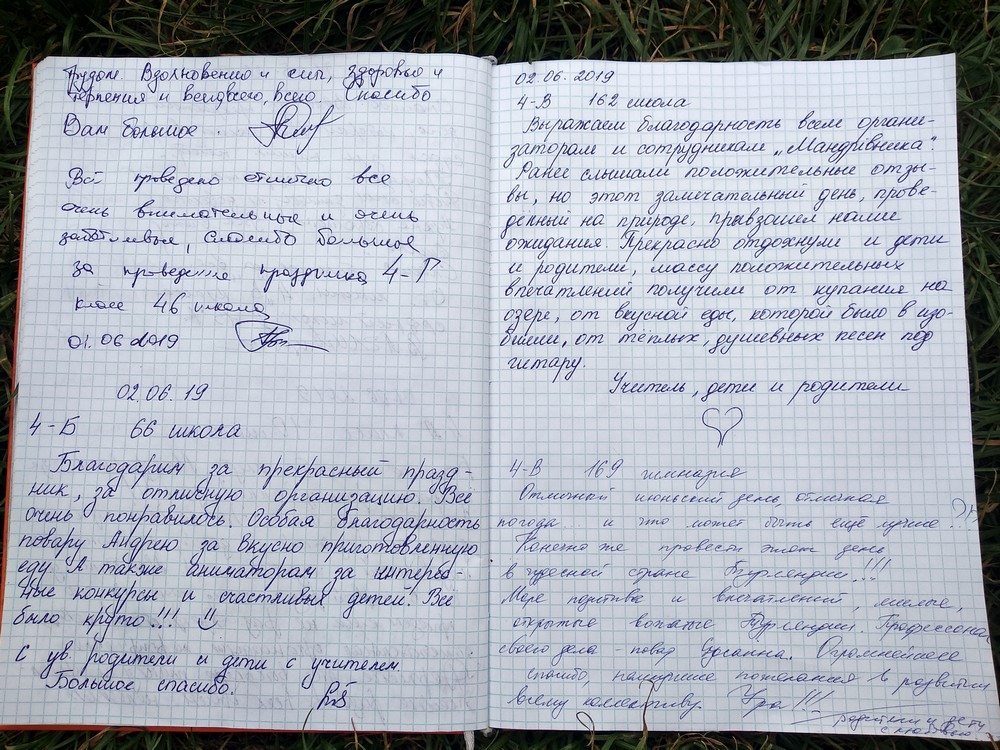 трудом. Вдохновения и сил, здоровья и
терпения и всего, всего. Спасибо
Вам большое.
Всё проведено отлично все
очень внимательные и очень
заботливые, спасибо большое
за проведение праздника 4-Г
класс 46 школа
01.06 2019
02.06.19
4-Б 66 школа
Благодарим за прекрасный празд-
ник, за отличную организацию. Всё
очень понравилось. Особая благодарность
повару Андрею за вкусно приготовленную
еду. А также аниматорам за интерес-
ные конкурсы и счастливых детей. Всё
было круто!!!
С ув. родители и дети с учителем
Большое спасибо.
02.06.2019
4-В 162 школа
Выражаем благодарность всем органи-
заторам и сотрудникам „Мандрівника".
Ранее слышали положительные отзы-
вы, но этот замечательный день, прове-
денный на природе, превзошел наши
ожидания. Прекрасно отдохнули и дети
и родители, массу положительных
впечатлений получили от купания на
озере, от вкусной еды, которой было в изо-
билии, от тёплых, душевных песен под
гитару.
Учитель, дети и родители
4-В 169 гимназия
Отличный июньский день, отличная
погода и что может быть ещё лучше?
Конечно же провести этот день
в чудесной стране !!!
Море позитива и впечатлений, милые,
открытые вожатые. Профессионал
своего дела - повар. Огромнейшее
спасибо, наилучшие пожелания в развитии
всему коллективу. Ура!!!
родители и дети
с любовью